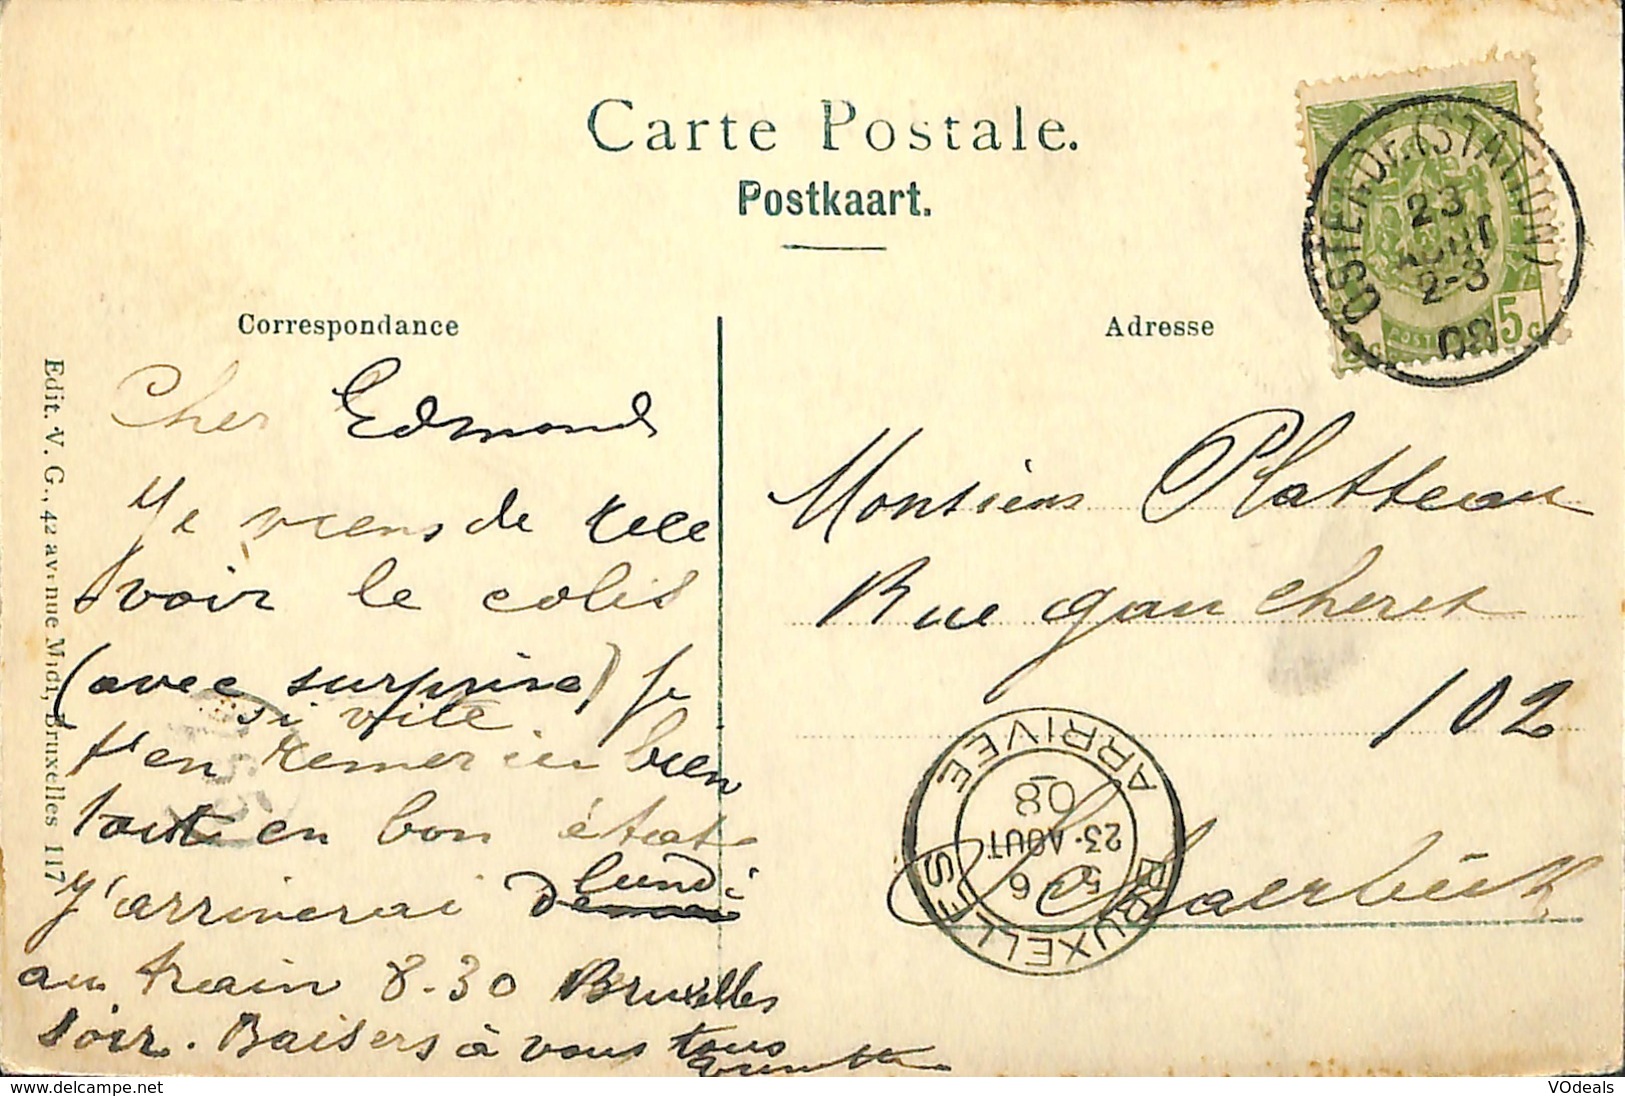 Carte Postale.
Postkaart.
Correspondance
Adresse
Edit. V. G., 42 avenue Midi, Bruxelles 117
OSTENDE (STATION)
23
AOUT
2-3
08
5 c
Cher Edmond
Je viens de rece
voir le colis
(avec surprise) je
si vite
t'en remercie bien
tout en bon état
J'arriverai
lundi
au train 8.30 Bruxelles
soir. Baisers à vous tous
Monsieur Platteau
Rue gaucheret
102
Schaerbeek
BRUXELLES
ARRIVEE
6
23-AOUT
08
delcampe.net
VOdeals